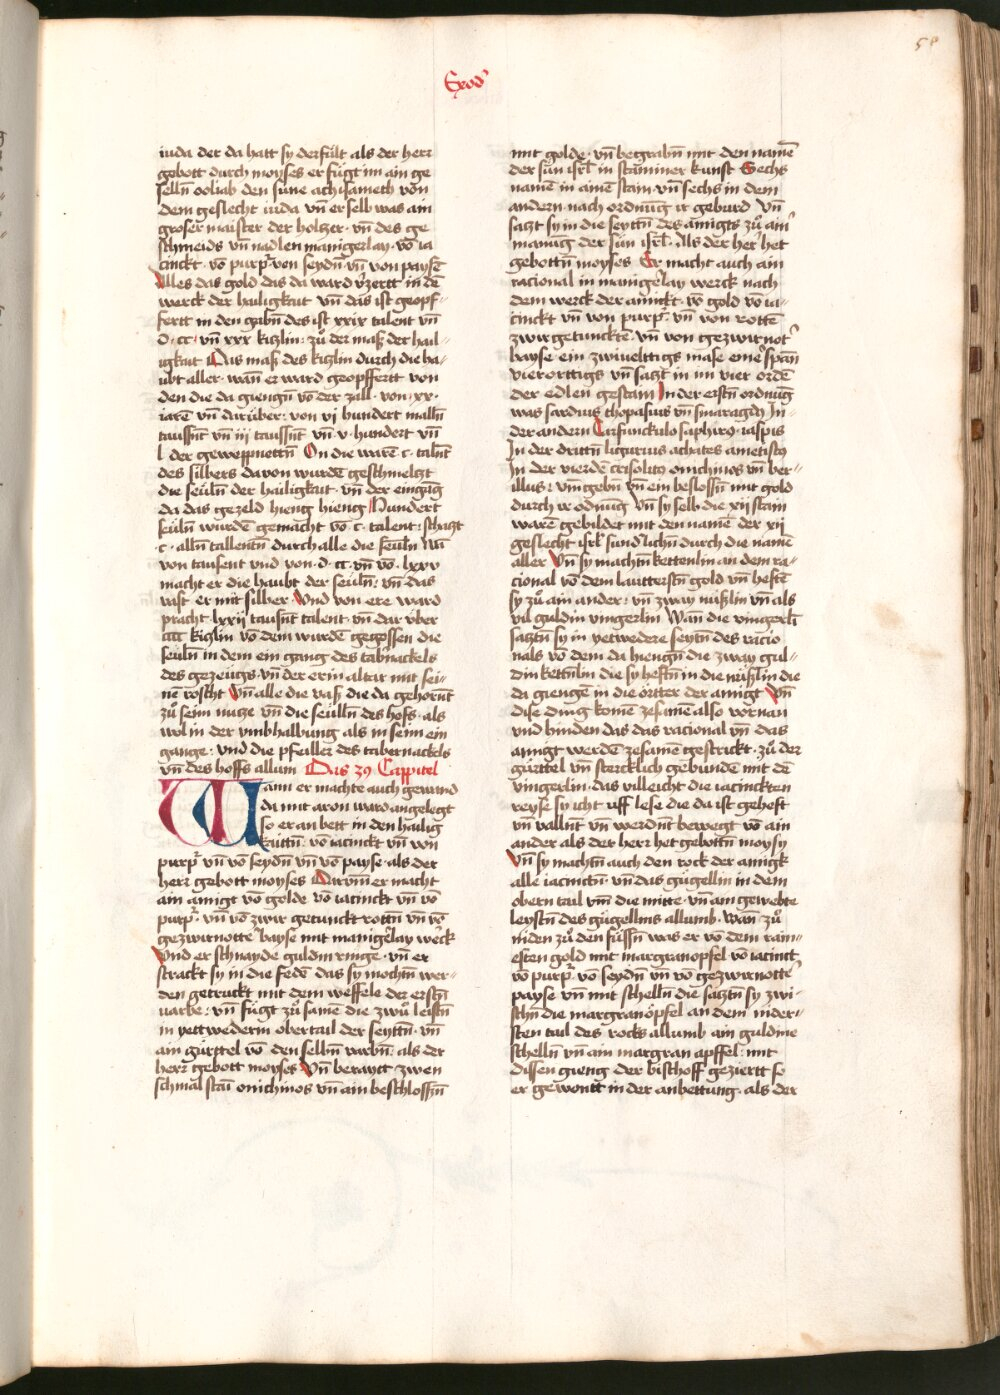 58
Exod'
iuda der da hatt sy derfült als der herr
gobott durch moyses er fügt im ain ge
selln ooliab den sune achisameth von
dem geslecht iuda vn̄ er selb was ain
groser maister der holczer · vn̄ des ge
schmeids vn̄ nadlen manigerlay · vō ia
cinckt · vō purpʳ von seydn̄ · vn̄ von paysē
Alles das gold das da ward v̓zertt in dē
werck der hailigkait vn̄ das ist geopf-
fertt in den gabn̄ des ist xxix talent vn̄
d · cc · vn̄ xxx kiczlin : zů der maß der hail-
igkait Das maß des kiczlin durch die ha-
ubt aller · wān er ward geopffertt von
den die da giengn̄ vō der zall · von · xx ·
iarē vn̄ darüber : von vj hundert malln̄
taussn̄t vn̄ iij taussn̄t vn̄ · v · hundert vn̄
l der geweppnettn̄ On die warē c · taln̄t
des silbers davon wurdē geschmelczt
die seüln̄ der hailigkait · vn̄ der eingāg
da das gezeld hieng hieng Hundert
seüln̄ wurdēn gemacht vō · c · talent : schaczt
· c · alln̄ tallentn̄ durch alle die seüln̄ Vn̄
von tausent vnd von · d · cc · vn̄ vō · lxxv
macht er die haubt der seüln̄ : vn̄ das
vast er mit silber · Vnd von ere ward
pracht · lxxij tausn̄t talent · vn̄ dar vber
cccc kiczlin vō dem wurdē gegossen die
seüln̄ in dem ein gang des tab̓nackels
des gezeügs · vn̄ der erin altar mit sei-
nē roscht Vn̄ alle die vaß die da gehorn̄t
zů seim nucze vn̄ die seülln̄ des hofs · als
wol in der vmbhalbung als in seim ein
gange : vnd die pfeiller des tabernackels
vn̄ des hoffs allum Das 39 Cappitel
Wann er machte auch gewand
da mit aron ward angelegt
so er an bett in den hailig
kaittn̄ : vō iacinckt vn̄ von
purpʳ vn̄ vō seydn̄ vn̄ vō payse · als der
herr gebott moyses Darvm̄ er macht
ain amigt vō golde vō iacinckt vn̄ vō
purpʳ · vn̄ vō zwir getunckt rottn̄ vn̄ vō
gezwirnotte bayse mit manig̓lay w̓eck
Vnd er schnayde guldin ringe · vn̄ er
strackt sy in die fedē das sy mochn̄ wer-
den getruckt mit dem weffele der erstn̄
varbe : vn̄ fügt zůsamē die zwů leistn̄
in yettwederm obertail der seyttn̄ · vn̄
ain gürttel vō den selbn̄ varbn̄ : als der
herr gebott moyses Vn̄ beraytt zwen
schmal stāi onichinos vn̄ ain beschlossn̄
mit golde · vn̄ begrabn̄ mit den namē
der sün isrl̄ in stāminer kunst Sechs
namē in ainē stain · vn̄ sechs in dem
andern nach ordnūg ir geburd Vn̄
saczt sy in die seyttn̄ des amigts zů ain̓
manūg der sün isrl̄ · Als der her̓ het
gebottn̄ moyses Er macht auch ain
racional in manig̓lay werck nach
dem werck der amickt · vō gold vō ia-
cinckt vn̄ von purpʳ · vn̄ von rottē
zwir getuncktē · vn̄ von gezwirnot̓
bayse · ein zwiuelttigs mase einē spān
vierorttigs vn̄ saczt in im vier ordē
der edlen gestain In der erstn̄ ordnūg
was sardius thopasius vn̄ smaragdꝯ In-
der andern Carfunckulo saphirꝯ · iaspis
In der drittn̄ ligurius achates ametistꝯ
In der vierdē crisolitꝯ onichinos vn̄ ber-
illus : vm̄gebn̄ vn̄ ein beslossn̄ mit gold
durch ir odnūg Vn̄ sy selb die xij stain
warē gebildet mit den namē der xij
geslecht isrl̄ sund̓lichn̄ durch die namē
aller Vn̄ sy machtn̄ kettenlin an dem ra-
cional vō dem lautterstn̄ gold vn̄ heftē
sy zů ain ander : vn̄ zway nüßlin vn̄ als
vil guldin vingerlin Wan die vingerlī
saztn̄ sy in yetwedere seytn̄ des racio
nals vō dem da hiengn̄ die zway gul-
din kettn̄lin die sy heftn̄ in die nüßlin die
da giengē in die ortter der amigt Vn̄
dise ding komē zesamē also vornan
vnd hinden das das racional vn̄ das
amigt werdē zesamē gestrickt · zů der
gürttel vn̄ stercklich gebundē mit dē
vingerlin · das villeicht die iacinckten
reyse sy icht uff lese die da ist geheft
vn̄ valln̄t vn̄ werdn̄t bewegt vō ain
ander als der herr het gebottn̄ moysy
Vn̄ sy machtn̄ auch den rock der amigk
alle iacinctn̄ · vn̄ das gügellin in dem
obern tail vm̄ die mitte · vn̄ ain gewebte
leystn̄ des gügellins allumb · Wan zů
niden zů den füssn̄ was er vō dem rain-
esten gold mit margranopfel vō iacintt
vō purpʳ vō seydn̄ vn̄ vō gezwirnottē
payse vn̄ mit schelln̄ die saztn̄ sy zwi-
schn̄ die margranöpfel an dem nider-
sten tail des rocks allumb ain guldine
schelln̄ vn̄ ain margran apffel : mit
dissen gieng der bischoff geziertt so
er gewontt in der anbettung · als der